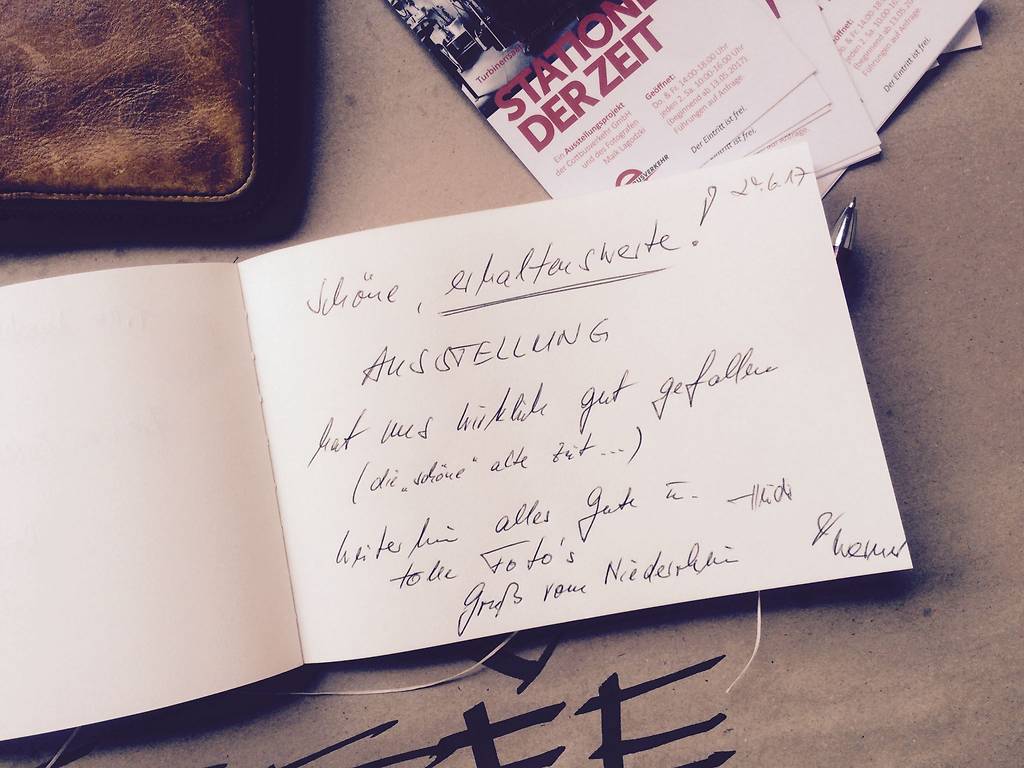 Turbinensaal
STATIONEN
DER ZEIT
Ein Ausstellungsprojekt
der Cottbusverkehr GmbH
und des Fotografen
Maik Lagodzki
Geöffnet:
Do. & Fr. 14:00-18:00 Uhr
jeden 2. Sa. 10:00-16:00 Uhr
(Beginnend ab 13.05.2017)
Führungen auf Anfrage.
Der Eintritt ist frei.
USVERKEHR
Geöffnet:
Do. & Fr. 14:00-18
jeden 2. Sa. 10:00
(Beginnend ab 13.05
Führungen auf Anfrage.
Der Eintritt ist frei.
ntritt ist frei.
Anfrage.
24.6.17
schöne, erhaltenswerte!
AUSSTELLUNG
hat uns wirklich gut gefallen
(die „schöne" alte Zeit...)
weiterhin alles Gute u.
tolle Foto's
Gruß vom Niederrhein
Heidi